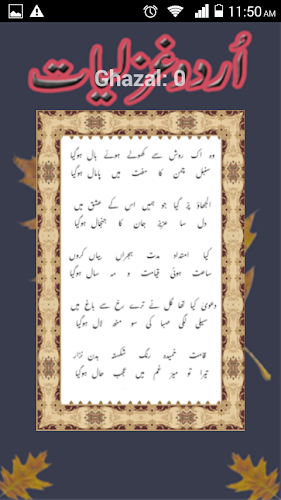 11:50 AM
اُردو غزلیات
Ghazal: 0
وہ اک روش سے کھولے ہوئے بال ہوگیا
سنبل چمن کا مفت میں پامال ہوگیا
الجھاؤ پڑ گیا جو ہمیں اس کے عشق میں
دل سا عزیز جان کا جنجال ہوگیا
کیا امتداد مدت ہجراں بیاں کروں
ساعت ہوئی قیامت و مہ سال ہوگیا
دعویٰ کیا تھا گل نے ترے رخ سے باغ میں
سیلی لگی صبا کی سو منھ لال ہوگیا
قامت خمیدہ رنگ شکستہ بدن نزار
تیرا تو میرؔ غم میں عجب حال ہوگیا